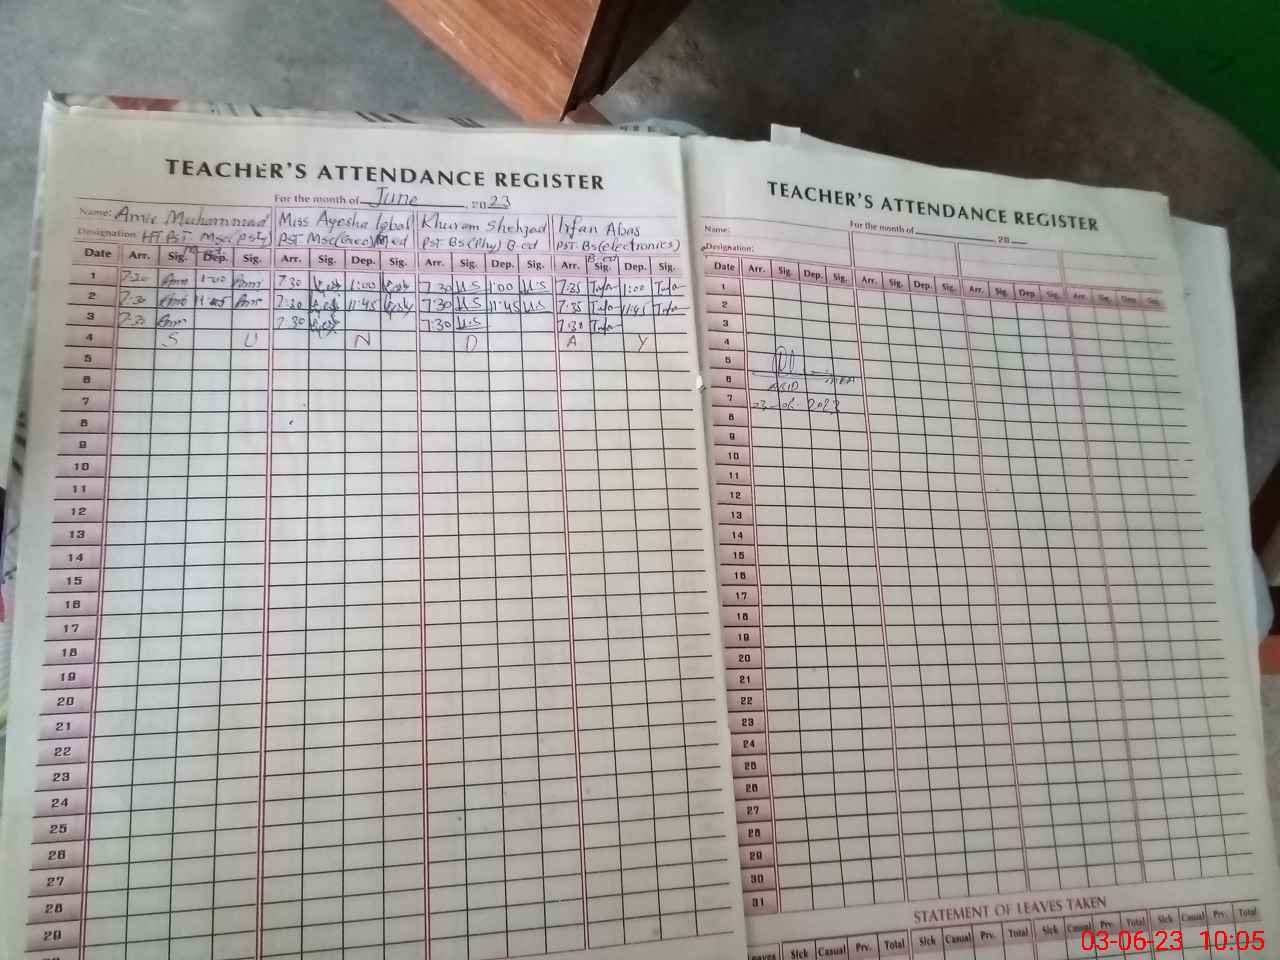 TEACHER'S ATTENDANCE REGISTER
For the month of June, 2023
Name: Amir Muhammad Miss Ayesha Iqbal Khuram Shehzad Irfan Abas
Designation: HT PST Msc(Psty) PST Msc(Geo) M ed PST Bs(Phy) B ed PST Bs(electronics) B ed
Date Arr. Sig. Dep. Sig. Arr. Sig. Dep. Sig. Arr. Sig. Dep. Sig. Arr. Sig. Dep. Sig.
1 7:30 1:00 7:30 1:00 7:30 U.S 1:00 U.S 7:25 1:00
2 7:30 11:45 7:30 11:45 7:30 U.S 11:45 U.S 7:25 11:45
3 7:30 7:30 7:30 U.S 7:30
4 S U N D A Y
5
6
7
8
9
10
11
12
13
14
15
16
17
18
19
20
21
22
23
24
25
26
27
28
29
TEACHER'S ATTENDANCE REGISTER
For the month of , 20
Name:
Designation:
Date Arr. Sig. Dep. Sig. Arr. Sig. Dep. Sig. Arr. Sig. Dep. Sig. Arr. Sig. Dep. Sig.
1
2
3
4
5
6
7 03-06-2023
8
9
10
11
12
13
14
15
16
17
18
19
20
21
22
23
24
25
26
27
28
29
30
31
STATEMENT OF LEAVES TAKEN
Leaves Sick Casual Prv. Total Sick Casual Prv. Total Sick Casual Prv. Total Sick Casual Prv. Total
03-06-23 10:05